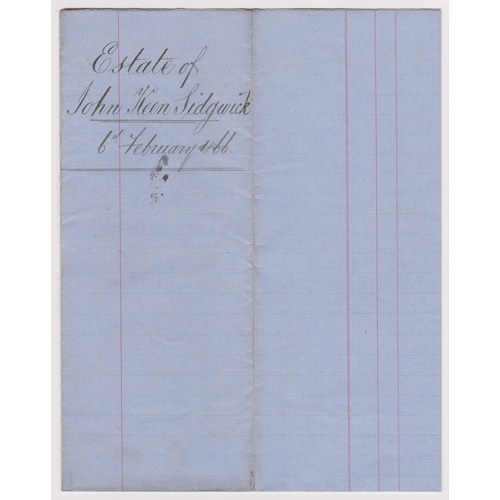 Estate of
John Keen Sidgwick
6th February 1866.